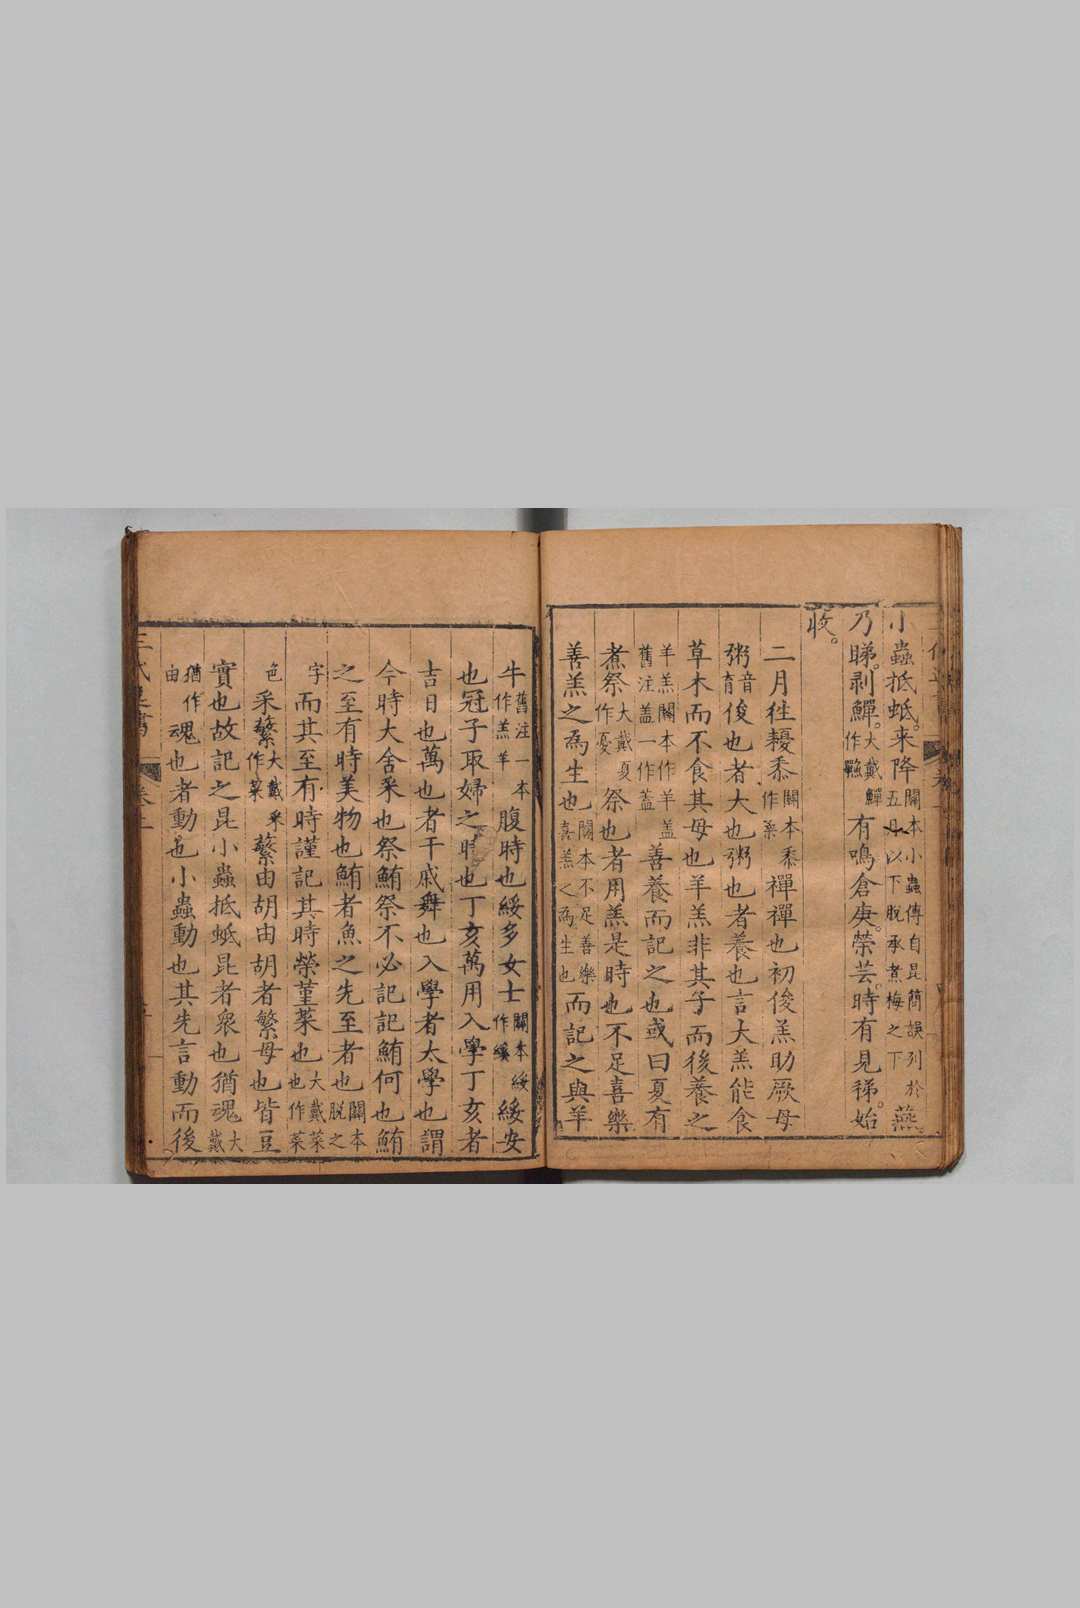 小蟲抵蚳。来降關本小蟲傳自昆簡誤列於五月以下脫承煮梅之下燕。
乃睇。剥鱓。大戴鱓作鼉有鳴倉庚。榮芸。時有見稊。始
收。
二月徃耰黍關本黍作糸禪禪也初俊羔助厥母
粥音育俊也者大也粥也者養也言大羔能食
草木而不食其母也羊羔非其子而後養之
羊羔關本作羊盖舊注盖一作盖善養而記之也或曰夏有
煮祭大戴夏作憂祭也者用羔是時也不足喜樂
善羔之為生也關本不足善樂喜羔之為生也而記之與羊
牛舊注一本作羔羊腹時也綏多女士關本綏作緩綏安
也冠子取婦之時也丁亥萬用入學丁亥者
吉日也萬也者干戚舞也入學者太學也謂
今時大舍采也祭鮪祭不必記記鮪何也鮪
之至有時美物也鮪者魚之先至者也關本脫之
字而其至有時謹記其時榮堇菜也大戴菜也作菜
色采蘩大戴采作菜蘩由胡由胡者繁母也皆豆
實也故記之昆小蟲抵蚳昆者衆也猶魂大戴
猶作由魂也者動也小蟲動也其先言動而後
卷上